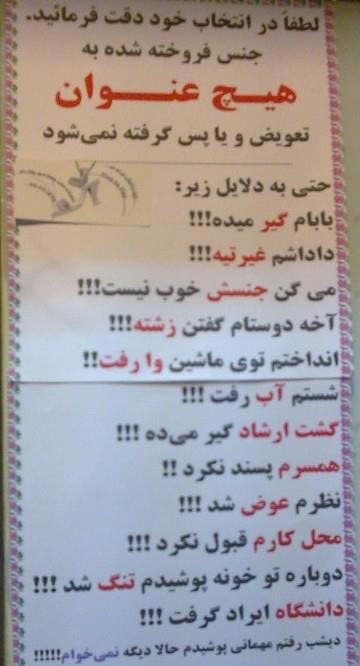 لطفاً در انتخاب خود دقت فرمائید.
جنس فروخته شده به
هیـچ عنـــوان
تعویض و یا پس گرفته نمی‌شود
حتی به دلایل زیر:
بابام گیر میده!!!
داداشم غیرتیه!!!
می گن جنسش خوب نیست!!!
آخه دوستام گفتن زشته!!!
انداختم توی ماشین وا رفت!!
شستم آب رفت !!!
گشت ارشاد گیر می‌ده !!!
همسرم پسند نکرد !!
نظرم عوض شد !!!
محل کارم قبول نکرد !!!
دوباره تو خونه پوشیدم تنگ شد !!!
دانشگاه ایراد گرفت !!!
دیشب رفتم مهمانی پوشیدم حالا دیگه نمی‌خوام!!!!!!